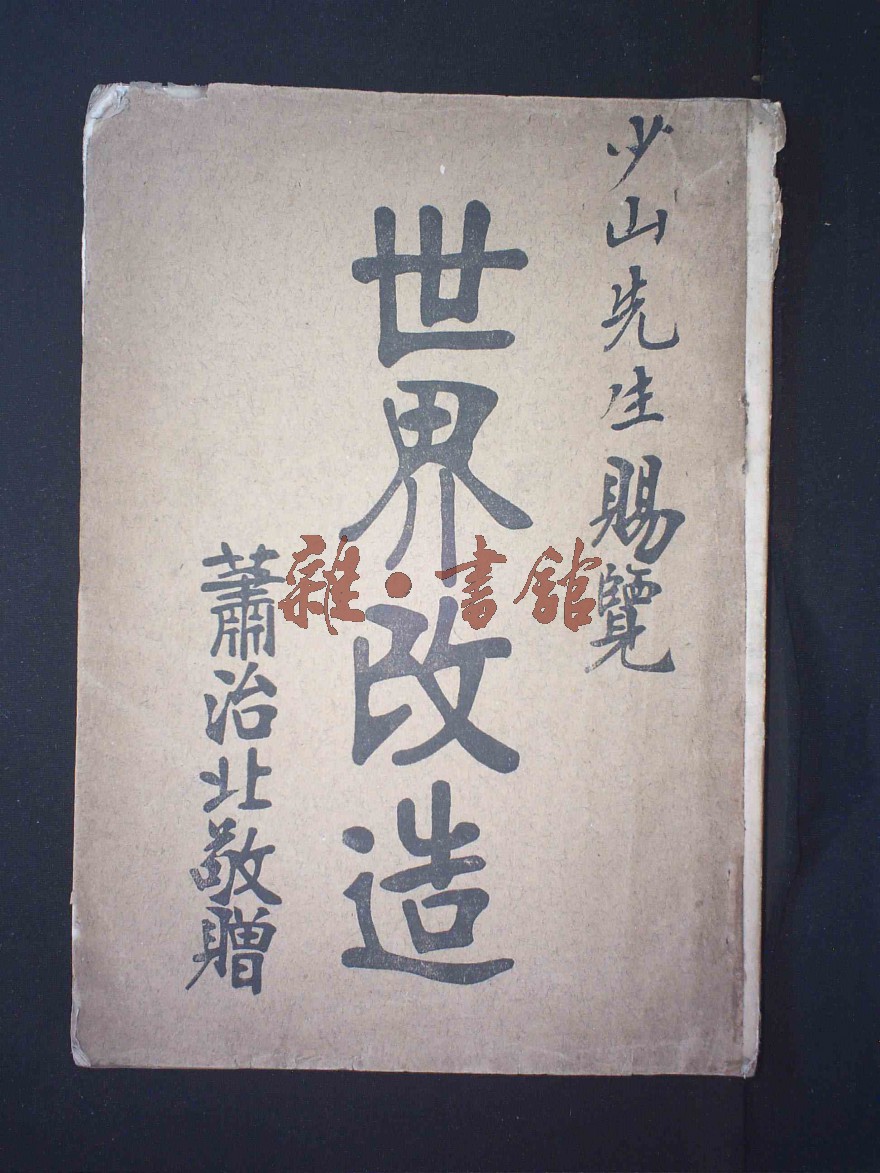 少山先生賜覽
世界改造
蕭治北敬贈
雜·書館